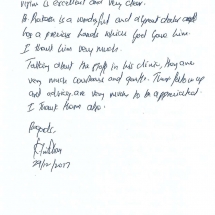 vision is excellent and very clear.
is a wonderful and a great doctor and
has a precious hands which God Gave him.
I thank him very much.
Talking about the staff in his clinic, they are
very much courteous and gentle. Their follow up
and advice are very much to be appreciated.
I thank them also.
Regards,
29/12/2017